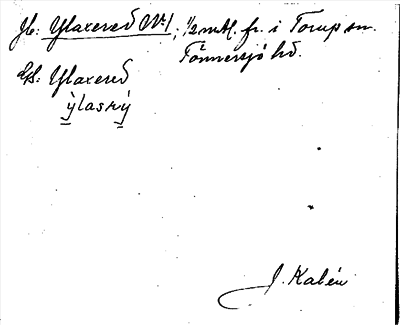 Jb: Ylaxered Nr 1; 1/2 mtl. fr. i Torup sn.
Tönnersjö hd.
Gs: Ylaxered
ỳlasrý
J. Kalén